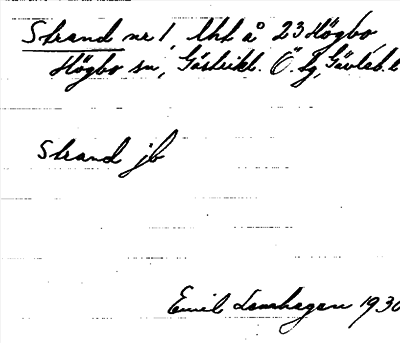 Strand nr 1, lht å 23 Högbo,
Högbo sn, Gästrikl. Ö. tg, Gävleb. l
Strand jb
Emil Lavehagen 1930